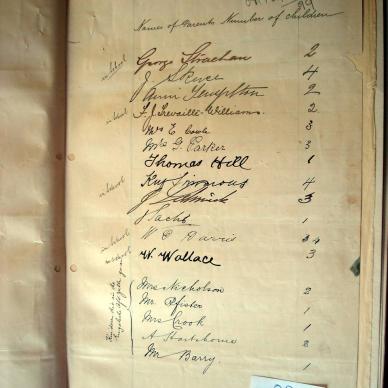 99
Names of Parents Number of children
in school George Strachan 2
J Skuce 4
Annie Templeton 2
in school F. J. Trevaille-Williams. 2
Mrs E Cowle 3
Mrs G. Parker 3
Thomas Hill 1
in school Simmons 4
J 3
Sachs 1
in school W C Darris 3 4
in school W. Wallace 3
Mrs Nicholson 2
Mr. Pfister 1
Mrs Crook 1
A Hartshorne 2
Mr Barry. 1